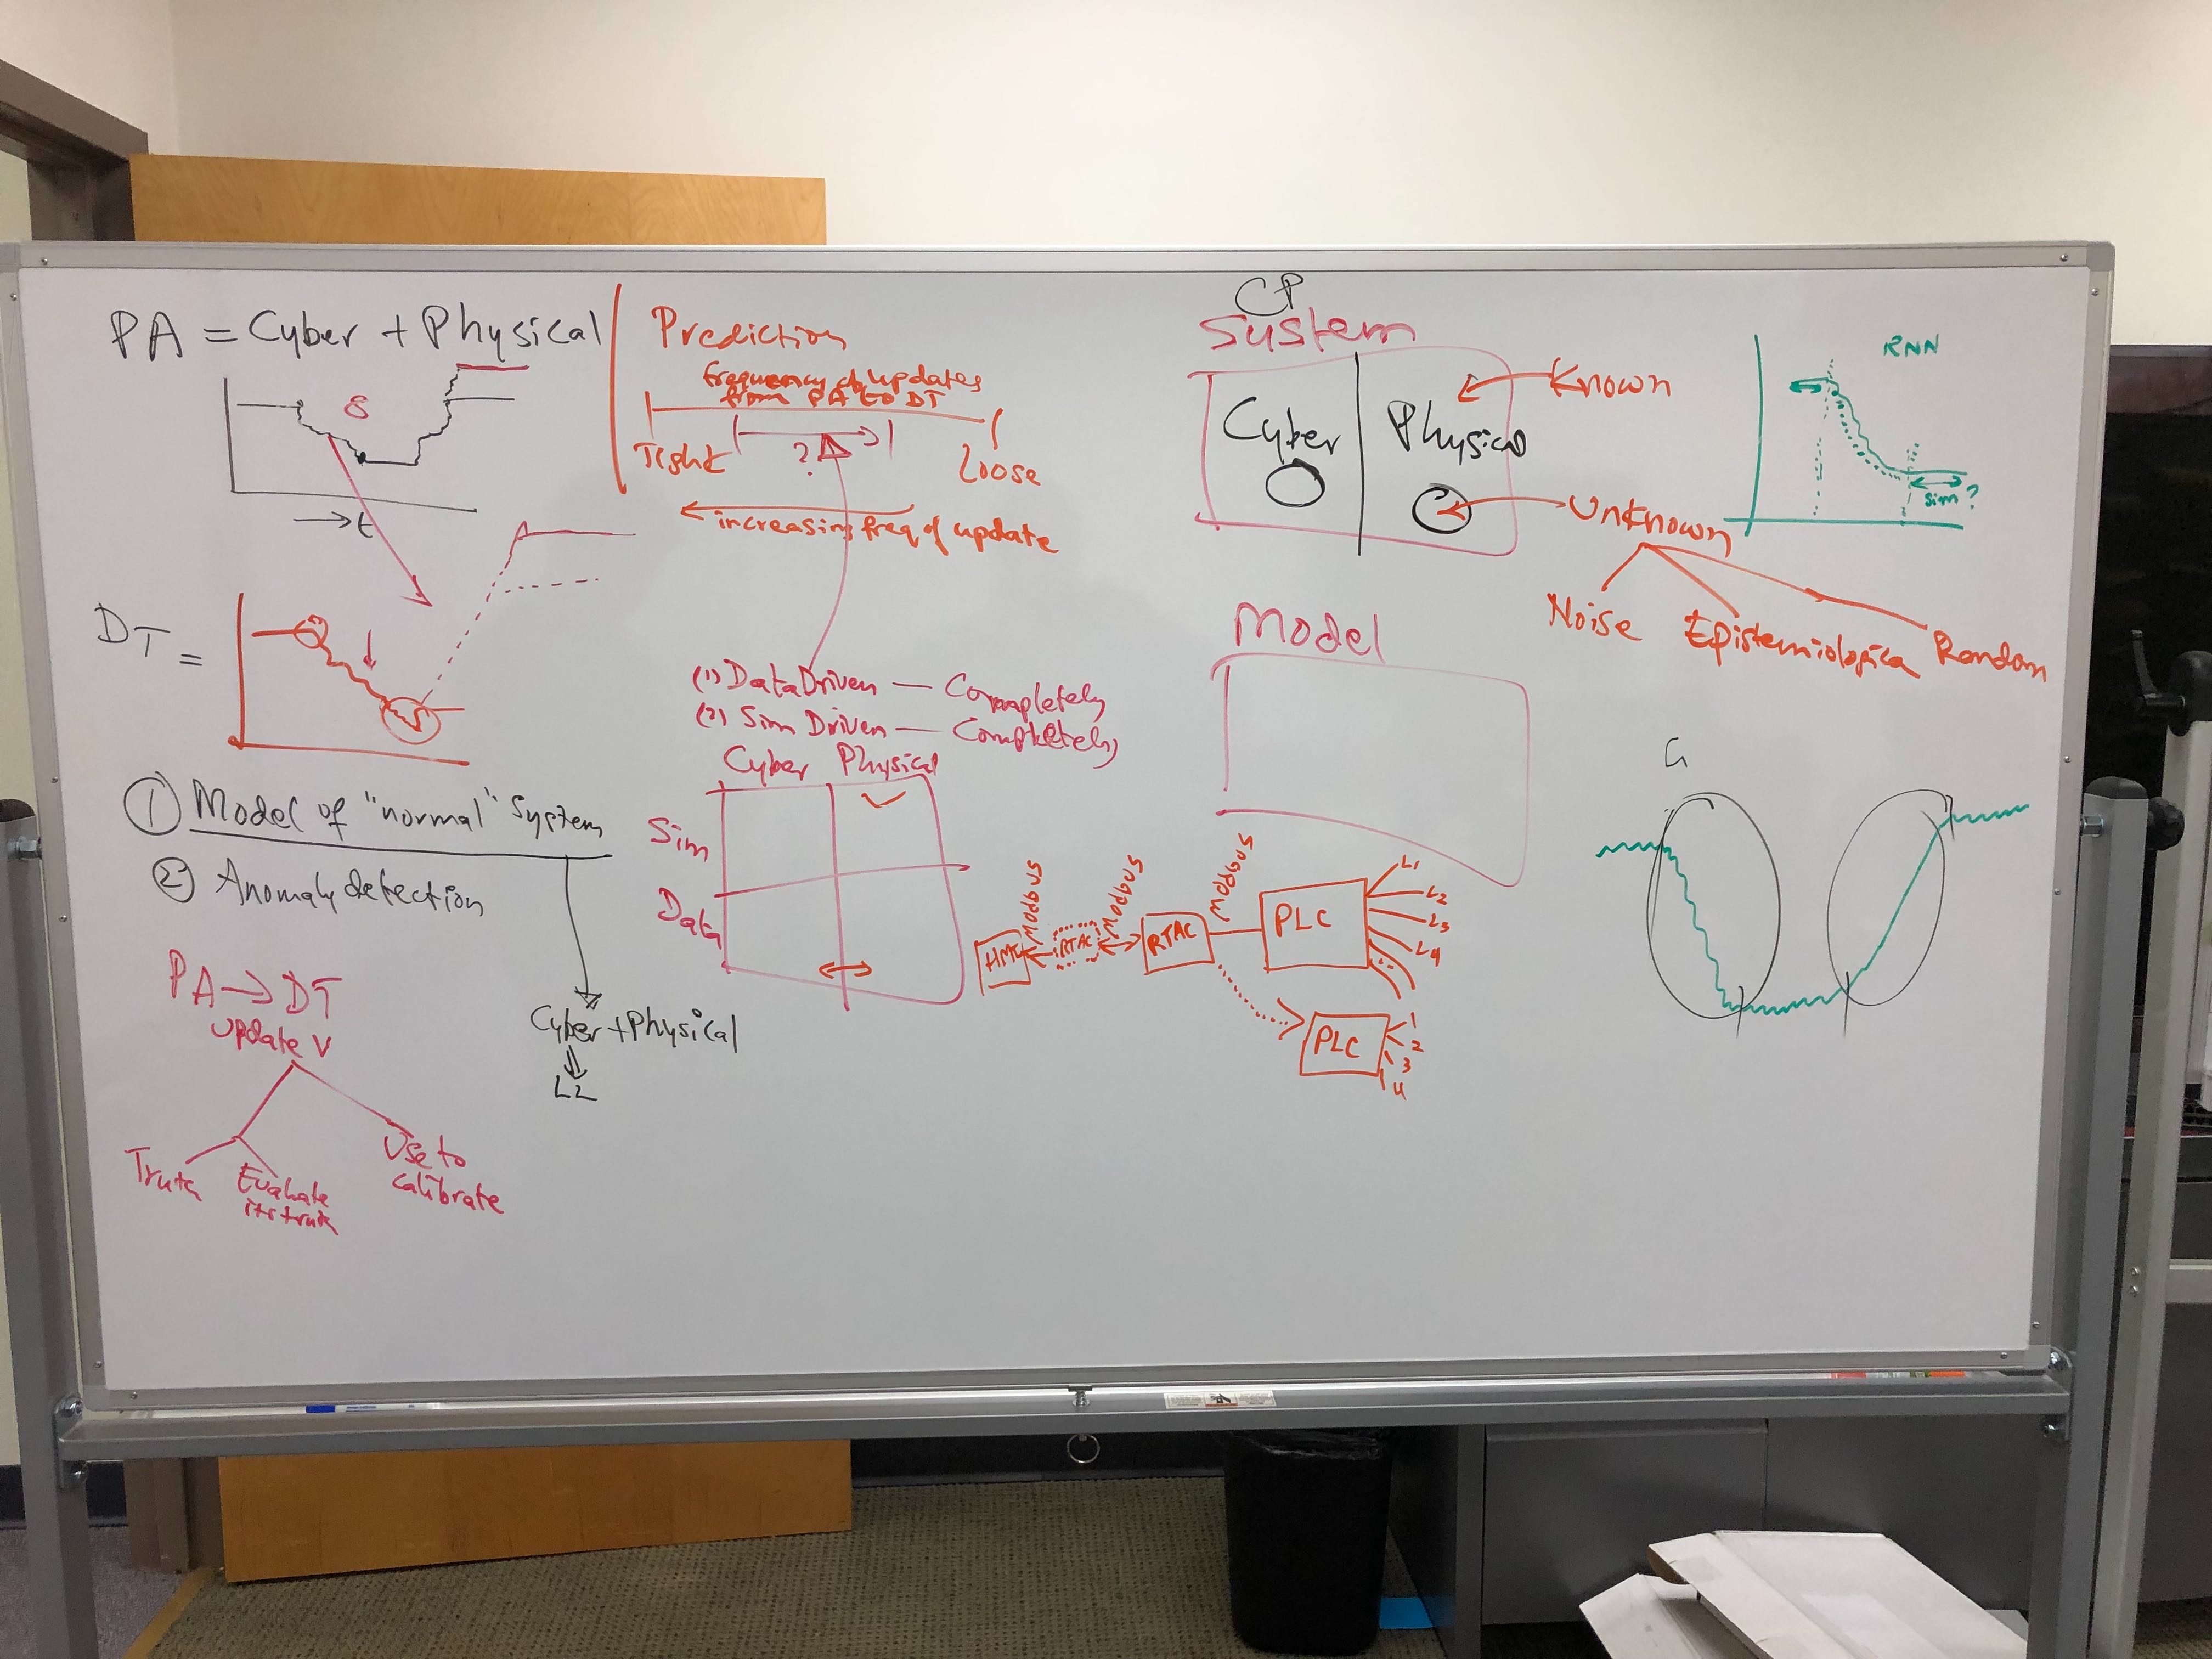 PA = Cyber + Physical
δ
→ t
DT =
① Model of "normal" System
② Anomaly detection
Cyber + Physical
L2
PA → DT
Update V
Truth
Evaluate
its truth
Use to
calibrate
Prediction
frequency of updates
from PA to DT
Tight
?
Loose
increasing freq of update
(1) Data Driven — Completely
(2) Sim Driven — Completely
Cyber Physical
Sim
Data
HMI
Modbus
RTAC
Modbus
RTAC
Modbus
PLC
L1
L2
L3
L4
PLC
1
2
3
4
CP
System
Cyber
Physical
Known
Unknown
Noise
Epistemiologica
Random
Model
RNN
Sim ?